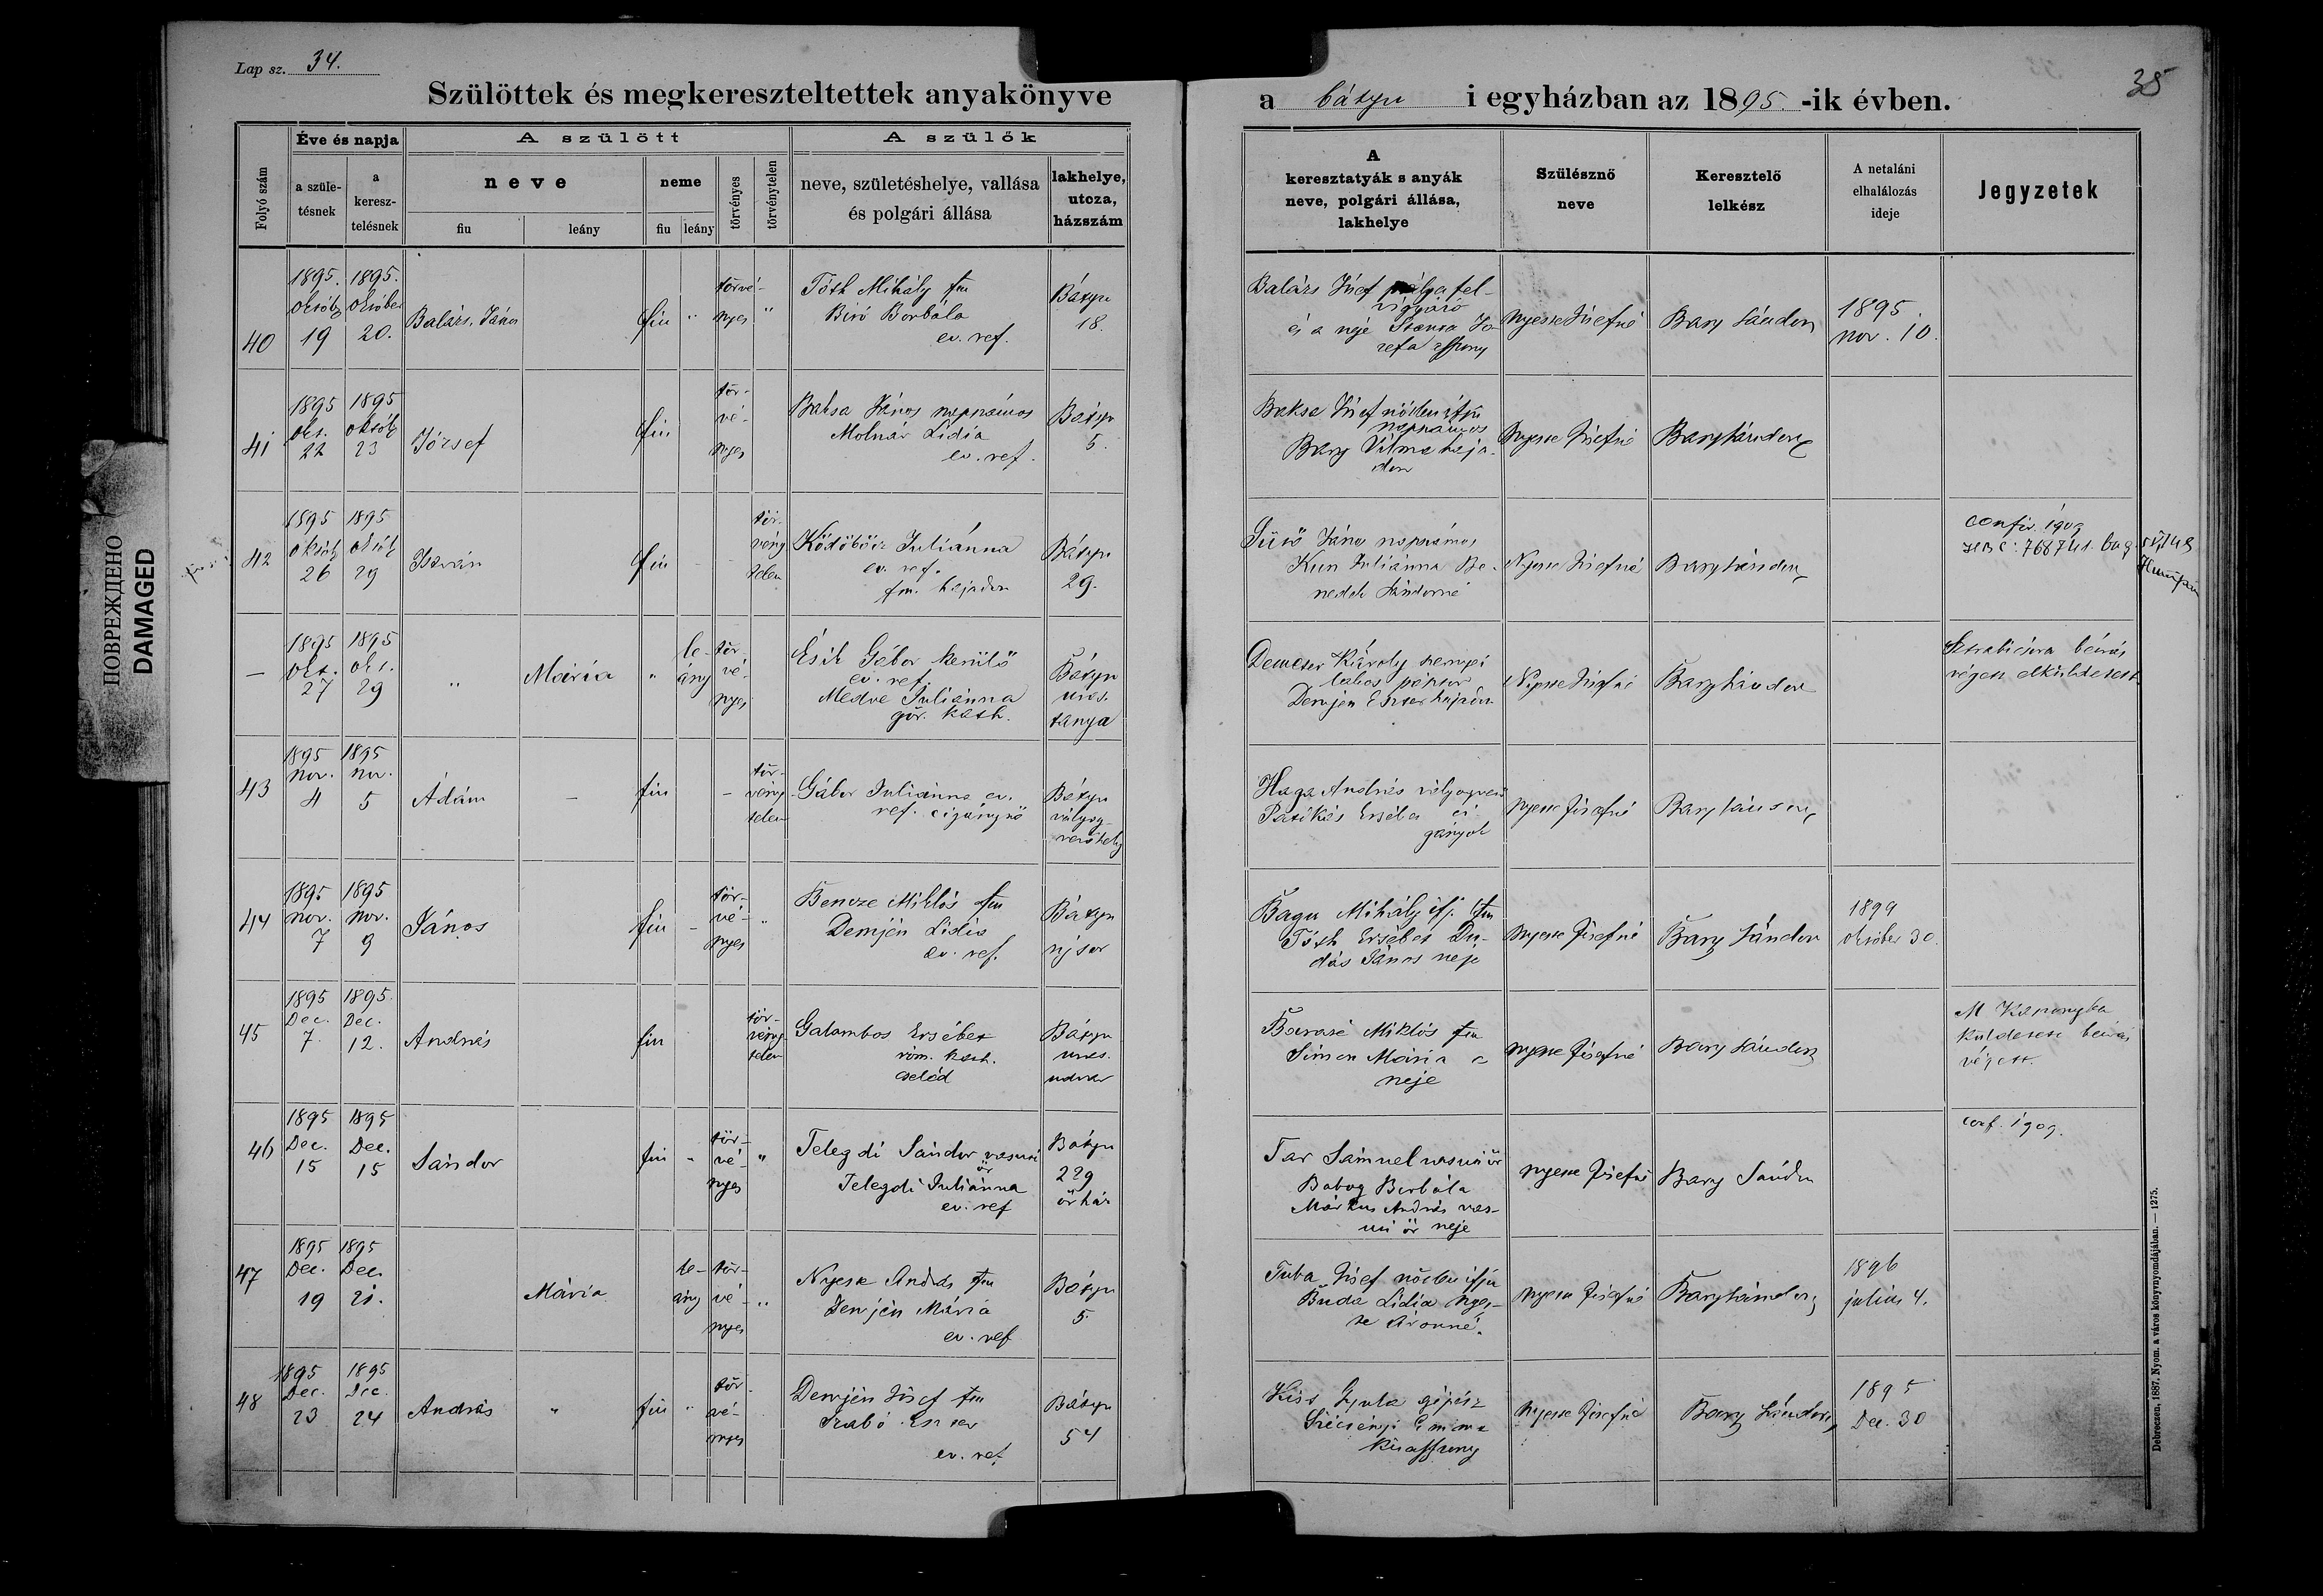 Lap sz. 34.
Szülöttek és megkereszteltettek anyakönyve
Folyó szám
Éve és napja
a születésnek
a keresztelésnek
A szülött
neve
fiu
leány
neme
fiu
leány
törvényes
törvénytelen
A szülők
neve, születéshelye, vallása
és polgári állása
lakhelye,
utcza,
házszám
40
1895. október 19
1895. október 20.
Balázs, János
fiu
"
törvényes
"
Tóth Mihály fm
Biró Borbála
ev. ref.
Bátyu
18.
41
1895 okt. 22
1895 októb 23
József
fiu
törvényes
Baksa János napszámos
Molnár Lidia
ev. ref.
Bátyu
5.
42
1895 októb 26
1895 októb 29
István
fiu
törvénytelen
Juliánna
ev. ref.
fm. hajadon
Bátyu
29.
—
1895 okt. 27
1895 okt. 29
"
Mária
"
leány
törvényes
Ésik Gábor kerülő
ev. ref.
Medve Juliánna
gör. kath.
Bátyu
uras.
tanya
43
1895 nov. 4
1895 nov. 5
Ádám
—
fiu
—
törvénytelen
Gábor Juliánna ev.
ref. cigánynő
Bátyu
vályog-
verőhely
44
1895 nov. 7
1895 nov. 9
János
fiu
-
törvényes
"
Bencze Miklós fm
Demjén Lidia
ev. ref.
Bátyu
uj sor
45
1895 Dec. 7.
1895. Dec. 12.
András
fiu
törvénytelen
Galambos Erzsébet
róm. kath.
cseléd
Bátyu
uras.
udvar
46
1895 Dec. 15
1895 Dec. 15
Sándor
fiu
"
törvényes
"
Telegdi Sándor vasuti
őr
Telegdi Juliánna
ev. ref
Bátyu
229
őrház
47
1895 Dec. 19
1895 Dec. 21.
Mária
leány
törvényes
"
Nyeste András fm
Demjén Mária
ev. ref
Bátyu
5.
48
1895 Dec. 23
1895 Dec. 24
András
"
fiu
"
törvényes
Demjén József fm
Szabó Eszter
ev. ref.
Bátyu
54
35
a bátyu i egyházban az 1895-ik évben.
A
keresztatyák s anyák
neve, polgári állása,
lakhelye
Szülésznő
neve
Keresztelő
lelkész
A netaláni
elhalálozás
ideje
Jegyzetek
Balázs József pálya fel-
vigyázó
és a neje
Nyeste Józsefné
Bary Sándor
1895.
nov. 10.
Baksa József nőtlen ifju
napszámos
Bary Vilma haja-
don
Nyeste Józsefné
Bary Sándor
Sütő János napszámos
Kun Juliánna Be-
nedek Sándorné
Nyeste Józsefné
Bary Sándor
confir. 1909
Demeter Károly
pásztor
Demjén Eszter hajadon
Nyeste Józsefné
Bary Sándor
beirás
végett elküldetett
Haga András vályogvető
Erzsébet ci-
gányok
Nyeste Józsefné
Bary Sándor
Bagu Mihály ifj. fm
Tóth Erzsébet Du-
dás János neje
Nyeste Józsefné
Bary Sándor
1899
október 30.
Miklós fm
Simon Mária a
neje
Nyeste Józsefné
Bary Sándor
küldetett beirás
végett.
Tar Sámuel vasuti őr
Borbála
Márkus András vas-
uti őr neje
Nyeste Józsefné
Bary Sándor
conf. 1909.
Tuba József nőtlen ifju
Buda Lidia Nyes-
te Áronné.
Nyeste Józsefné
Bary Sándor
1896
julius 4.
Kiss Gyula gépész
Szécsényi Emma
kisasszony
Nyeste Józsefné
Bary Sándor
1895
Dec. 30
Debreczen, 1887. Nyom. a város könyvnyomdájában. — 1275.
ПОВРЕЖДЕНО
DAMAGED